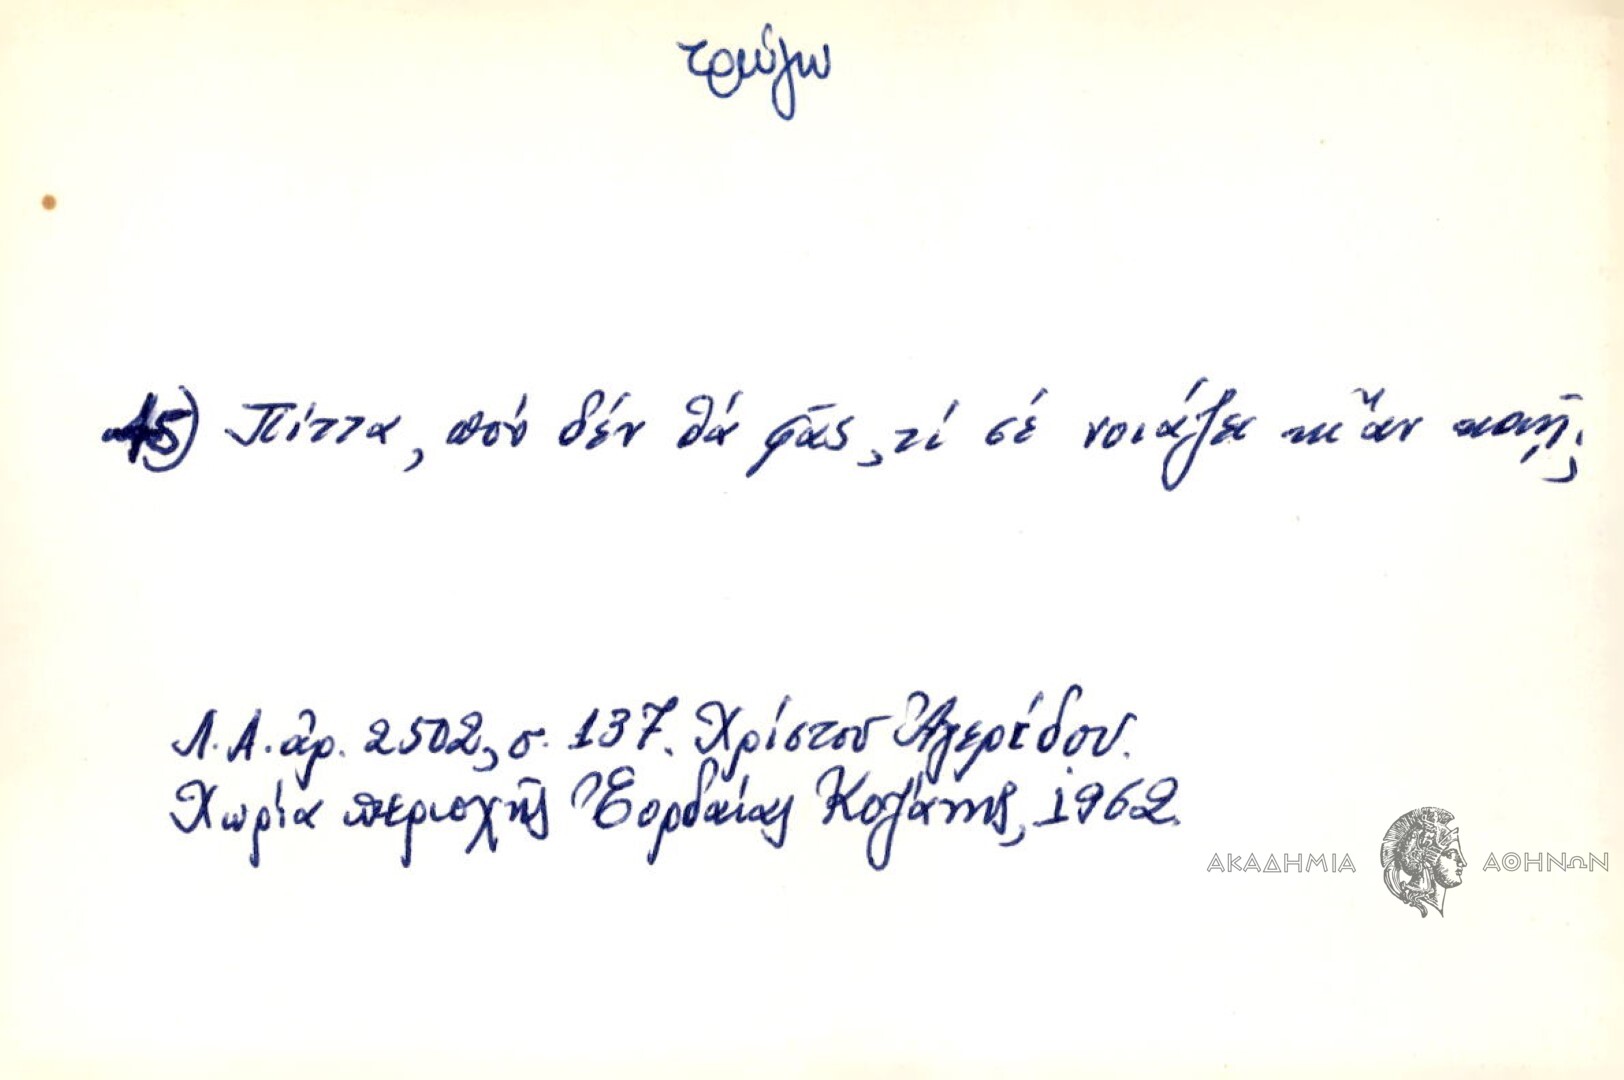 τρώγω
15) Πίττα, πού δέν θά φᾶς, τί σέ νοιάζει κι ἄν καῇ;
Λ.Α. ἀρ. 2502, σ. 137. Χρίστου
Χωρία περιοχῆς Ἐορδαίας Κοζάνης, 1962.
ΑΚΑΔΗΜΙΑ ΑΘΗΝΩΝ